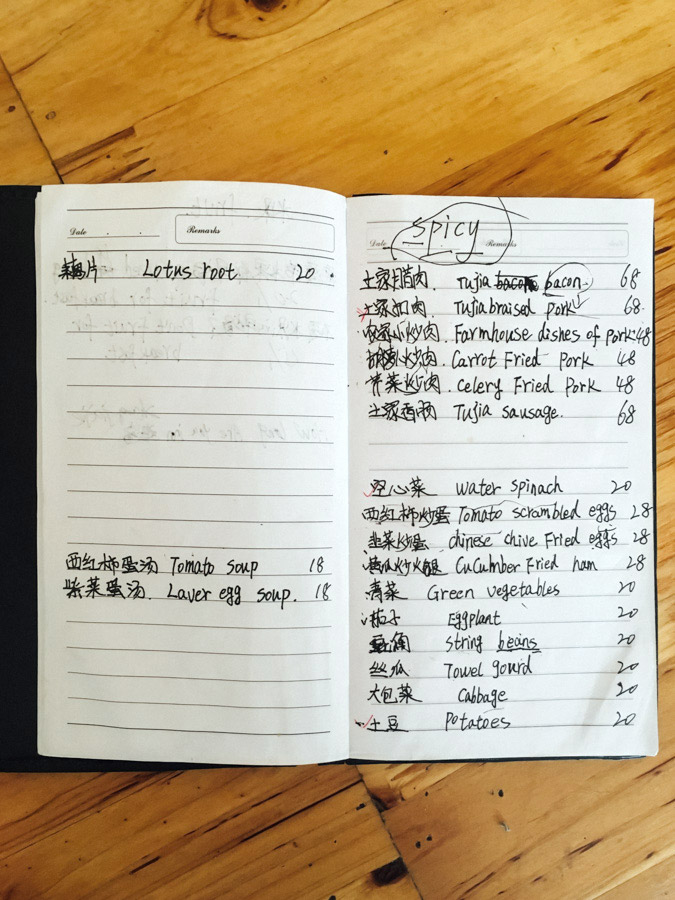 Date Remarks
藕片 Lotus root 20
西红柿蛋汤 Tomato soup 18
紫菜蛋汤. Laver egg soup. 18
Spicy
Date Remarks
土家腊肉. Tujia bacon 68
土家扣肉. Tujia braised pork 68
农家小炒肉. Farmhouse dishes of pork 48
胡萝卜炒肉. Carrot Fried pork 48
芹菜炒肉. Celery Fried pork 48
土家香肠 Tujia sausage. 68
空心菜 water spinach 20
西红柿炒蛋 Tomato scrambled eggs 28
韭菜炒蛋 chinese chive Fried eggs 28
黄瓜炒火腿 CuCumber Fried ham 28
青菜 Green vegetables 20
茄子 Eggplant 20
豆角 String beans 20
丝瓜 Towel gourd 20
大包菜 Cabbage 20
土豆 Potatoes 20